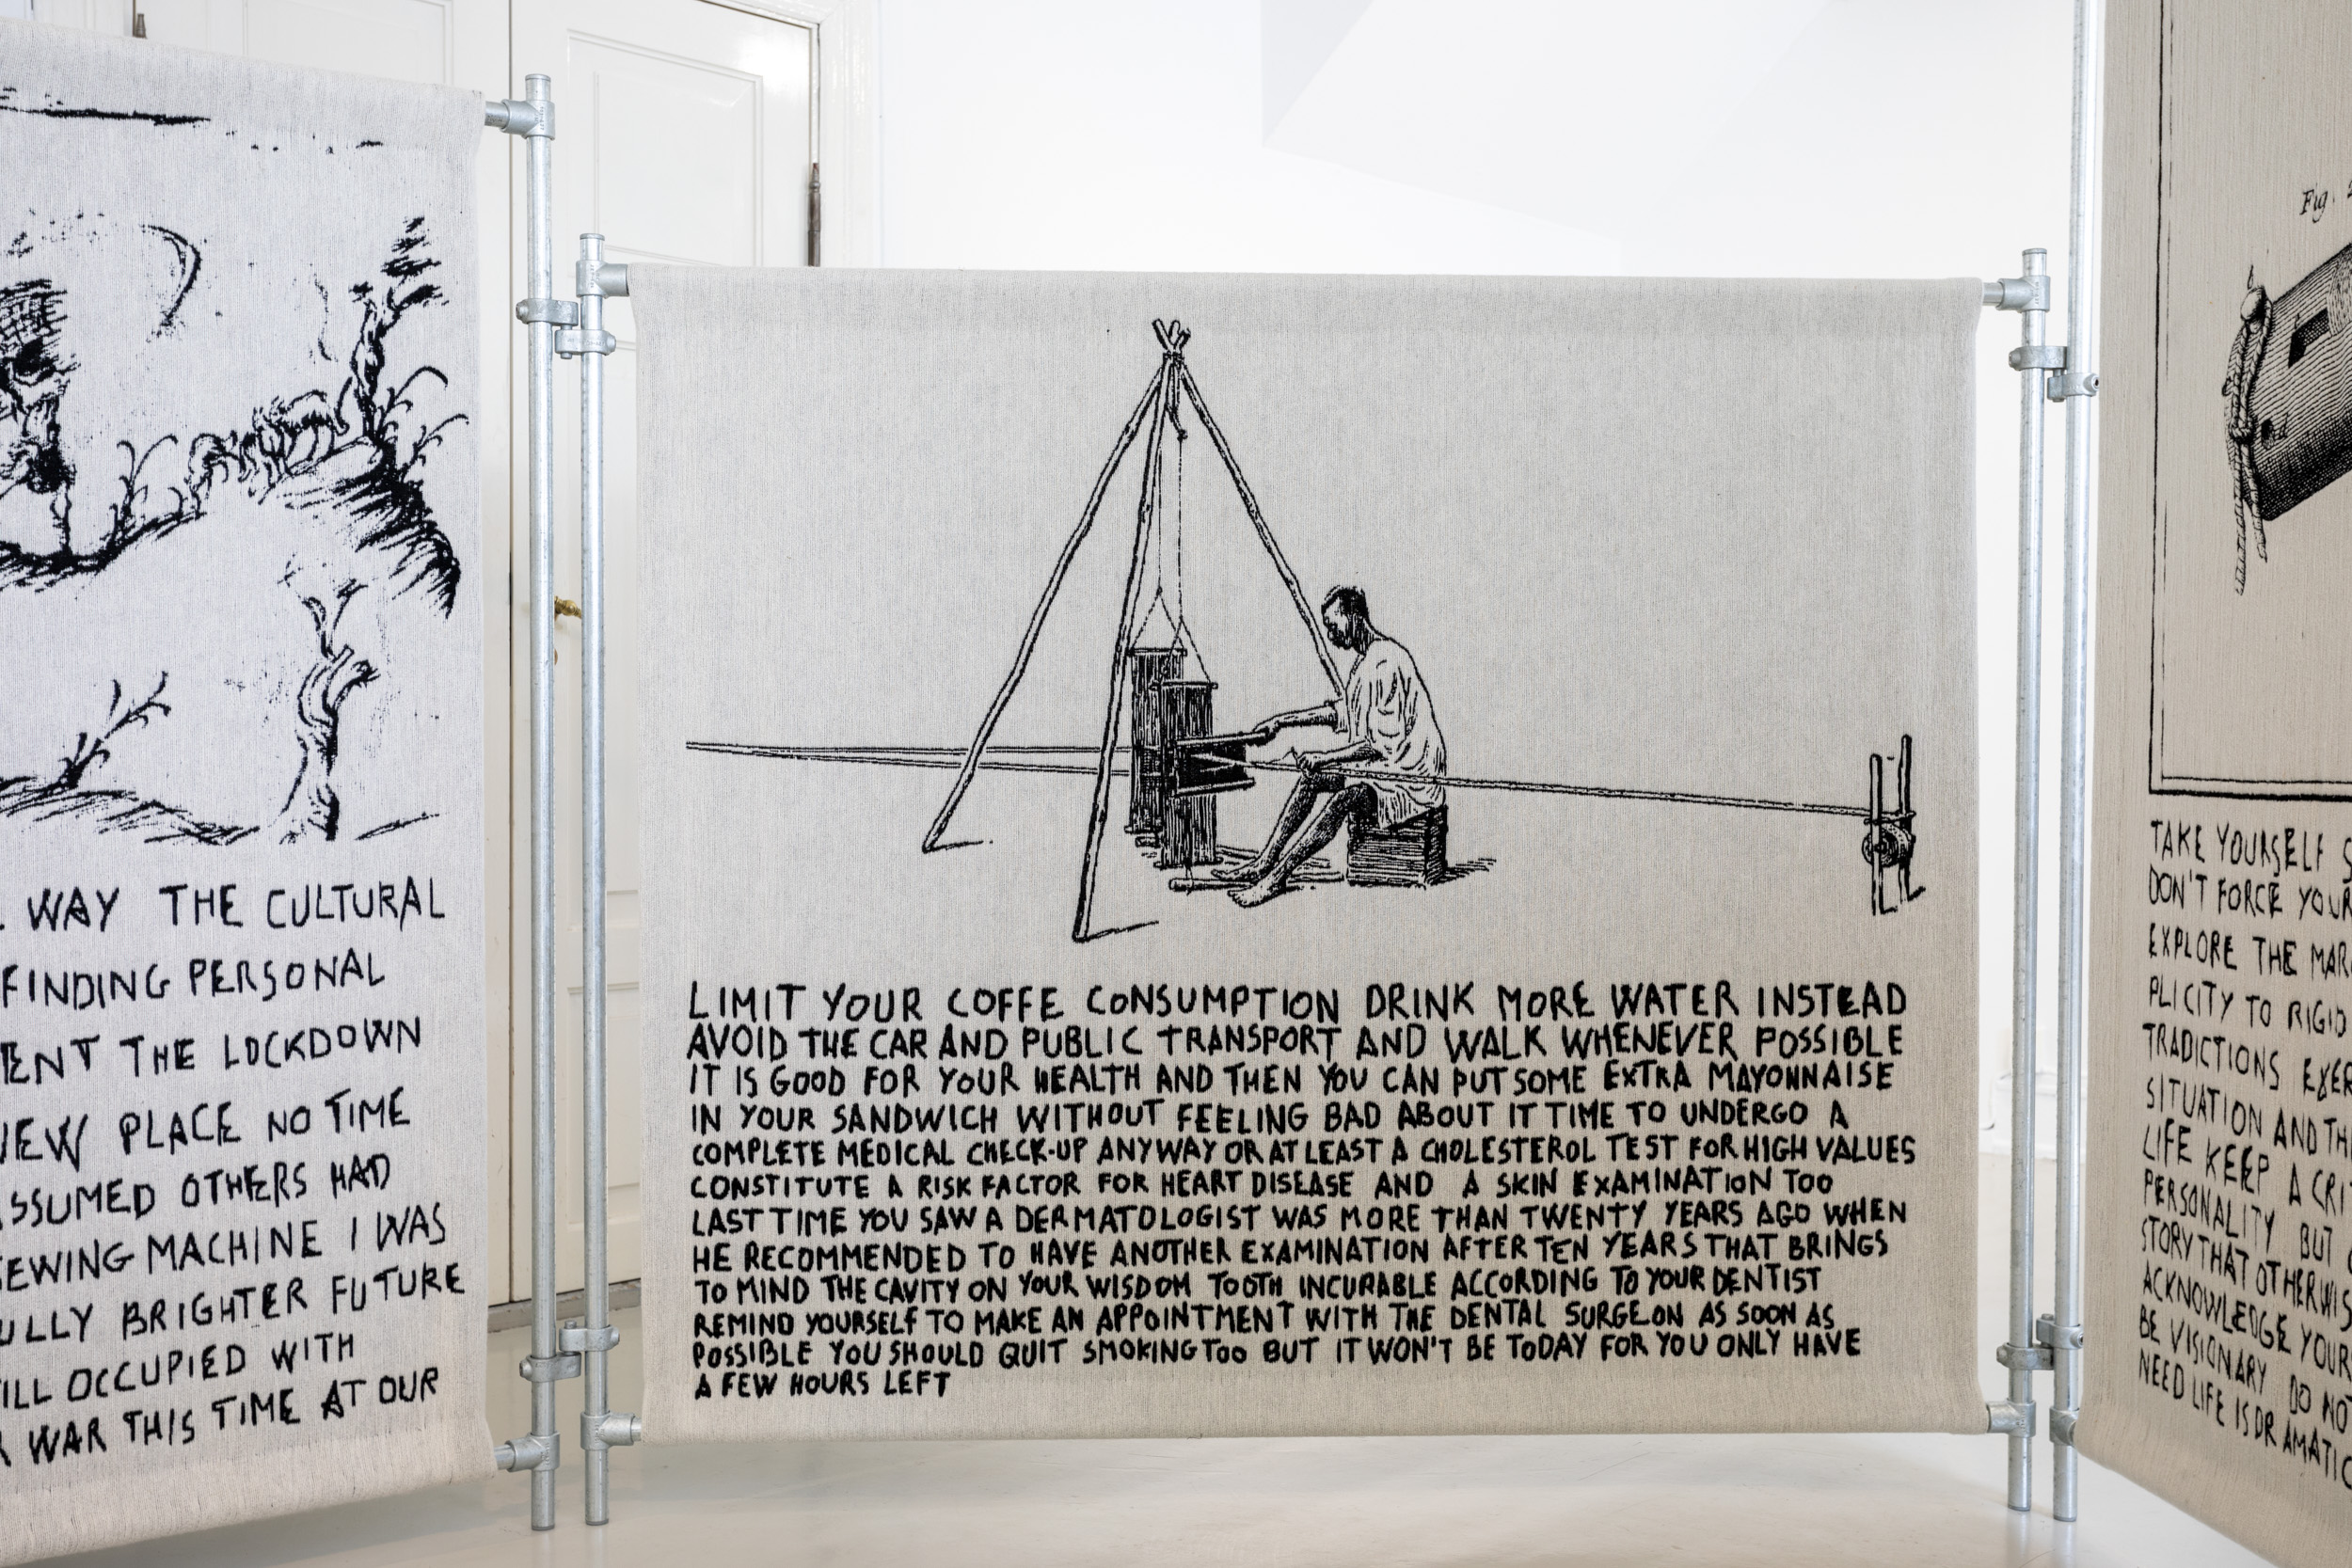 WAY THE CULTURAL
FINDING PERSONAL
THE LOCKDOWN
PLACE NO TIME
ASSUMED OTHERS HAD
SEWING MACHINE I WAS
BRIGHTER FUTURE
OCCUPIED WITH
WAR THIS TIME AT OUR
LIMIT YOUR COFFE CONSUMPTION DRINK MORE WATER INSTEAD
AVOID THE CAR AND PUBLIC TRANSPORT AND WALK WHENEVER POSSIBLE
IT IS GOOD FOR YOUR HEALTH AND THEN YOU CAN PUT SOME EXTRA MAYONNAISE
IN YOUR SANDWICH WITHOUT FEELING BAD ABOUT IT TIME TO UNDERGO A
COMPLETE MEDICAL CHECK-UP ANYWAY OR AT LEAST A CHOLESTEROL TEST FOR HIGH VALUES
CONSTITUTE A RISK FACTOR FOR HEART DISEASE AND A SKIN EXAMINATION TOO
LAST TIME YOU SAW A DERMATOLOGIST WAS MORE THAN TWENTY YEARS AGO WHEN
HE RECOMMENDED TO HAVE ANOTHER EXAMINATION AFTER TEN YEARS THAT BRINGS
TO MIND THE CAVITY ON YOUR WISDOM TOOTH INCURABLE ACCORDING TO YOUR DENTIST
REMIND YOURSELF TO MAKE AN APPOINTMENT WITH THE DENTAL SURGEON AS SOON AS
POSSIBLE YOU SHOULD QUIT SMOKING TOO BUT IT WON'T BE TODAY FOR YOU ONLY HAVE
A FEW HOURS LEFT
Fig.
TAKE YOURSELF
DON'T FORCE
EXPLORE THE
PLICITY TO RIGID
TRADICTIONS
SITUATION AND
LIFE KEEP A
PERSONALITY BUT
STORY THAT
ACKNOWLEDGE
BE VISIONARY DO NOT
NEED LIFE IS